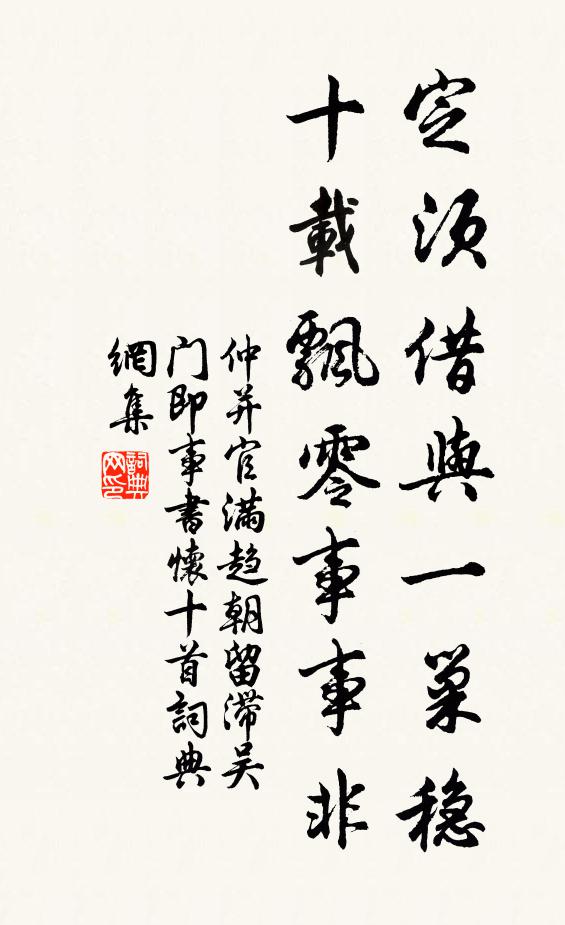 定须借與一巢稳
十載飄零事事非
仲并官满趋朝留滞吴
门即事書懷十首詞典
網集
詞典网印